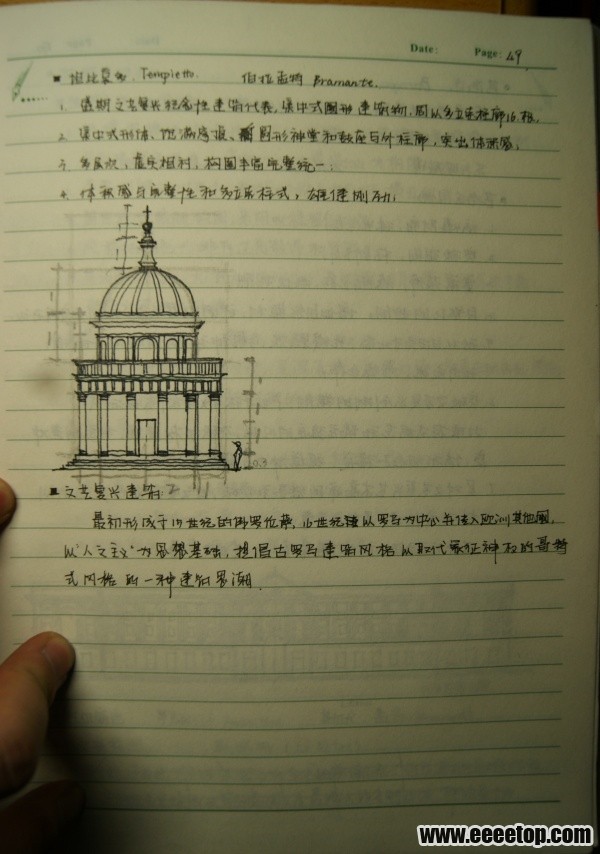 Date: Page: 49
▪ 坦比哀多. Tempietto. 伯拉孟特 Bramante.
1. 盛期文艺复兴纪念性建筑代表,集中式圆形建筑物,周以多立克柱廊16根,
2. 集中式形体、饱满穹顶、圆形神堂和鼓座与外柱廊,突出体积感,
3. 多层次,虚实相衬,构图丰富完整统一;
4. 体积感与完整性和多立克柱式,雄健刚劲;
▪ 文艺复兴建筑:
最初形成于15世纪的佛罗伦萨,16世纪起以罗马为中心并传入欧洲其他国,
以"人文主义"为思想基础,提倡古罗马建筑风格以取代象征神权的哥特
式风格的一种建筑思潮.
www.eeeetop.com